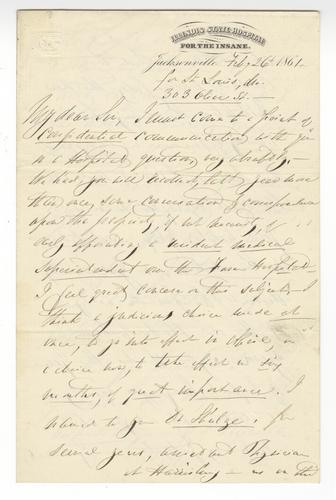 ILLINOIS STATE HOSPITAL
FOR THE INSANE.
Jacksonville Feb. 26th 1861.
for St Louis, Mo.
303 Olive St.
My dear Sir, I must come to a point of
confidential communication with you
on a Hospital question, very
We had, you will recollect, last year more
than once, some conversation & correspondence
upon the propriety, if not necessity, of
early appointing a resident medical
Superintendent over the Iowa Hospital
I feel great concern on this subject. I
think a judicious choice made at
once, to go into effect in April, or
a choice now to take effect in six
months, of great importance. I
named to you Dr for
several years, assistant Physician
at Harrisburg is on this